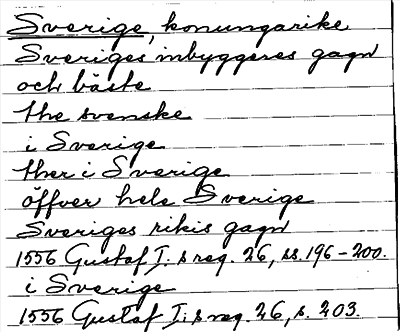 Sverige, konungarike
Sveriges inbyggeres gagn
och bäste
the svenske
i Sverige
ther i Sverige
öffver hele Sverige
Sveriges rikis gagn
1556 Gustaf I:s reg. 26, ss. 196-200.
i Sverige
1556 Gustaf I:s reg. 26, s. 203.